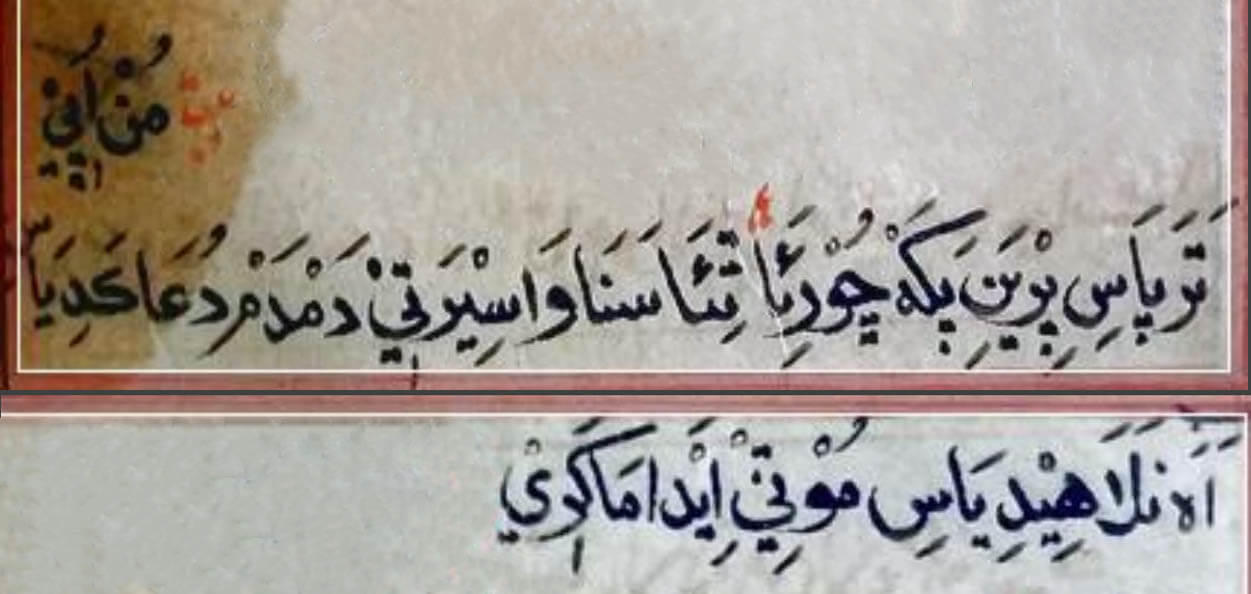 بيت مُنْ اُپِيْ
تَرَ پَاسِ پِرْيَنَ بِكَهْ چُوْرِئَا تِئَا سَنَا وَاسِيْرَتِيْ دَمْدَمْ دُعَا كَدِيَا
اَه نَلَا هِيْدِيَاسِ مُوْتِيْ اِيْدَا مَاكَرِيْ